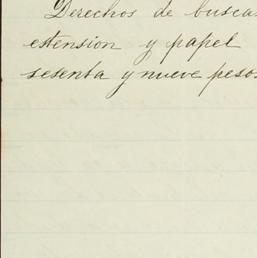 Derechos de busca
estension y papel
sesenta y nueve pesos